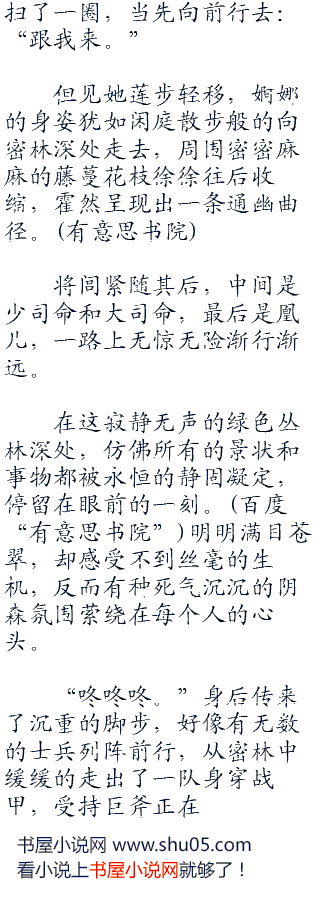 扫了一圈，当先向前行去：
“跟我来。”
但见她莲步轻移，婀娜
的身姿犹如闲庭散步般的向
密林深处走去，周围密密麻
麻的藤蔓花枝徐徐往后收
缩，霍然呈现出一条通幽曲
径。(有意思书院)
将闾紧随其后，中间是
少司命和大司命，最后是凰
儿，一路上无惊无险渐行渐
远。
在这寂静无声的绿色丛
林深处，仿佛所有的景状和
事物都被永恒的静固凝定，
停留在眼前的一刻。(百度
“有意思书院”)明明满目苍
翠，却感受不到丝毫的生
机，反而有种死气沉沉的阴
森氛围萦绕在每个人的心
头。
“咚咚咚。”身后传来
了沉重的脚步，好像有无数
的士兵列阵前行，从密林中
缓缓的走出了一队身穿战
甲，受持巨斧正在
书屋小说网 www.shu05.com
看小说上书屋小说网就够了！